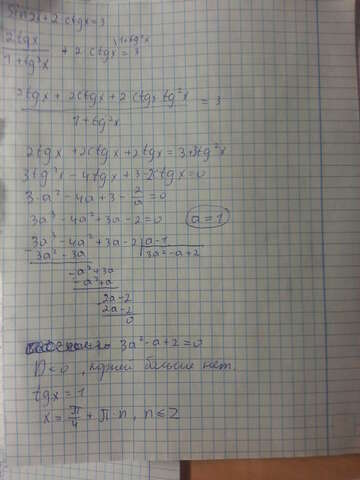 sin2x + 2 ctgx = 3
2tgx / 1+tg²x + 2 ctgx = 3
2tgx + 2ctgx + 2 ctgx tg²x / 1+tg²x = 3
2tgx + 2ctgx + 2tgx = 3+3tg²x
3tg²x - 4tgx + 3 - 2ctgx = 0
3·a² - 4a + 3 - 2/a = 0
3a³ - 4a² + 3a - 2 = 0   a = 1
3a³ - 4a² + 3a - 2 | a-1
3a³ - 3a² | 3a² - a + 2
-a² + 3a
-a² + a
2a - 2
2a - 2
0
3a² - a + 2 = 0
D < 0, корней больше нет.
tgx = 1
x = π/4 + π·n, n ∈ Z